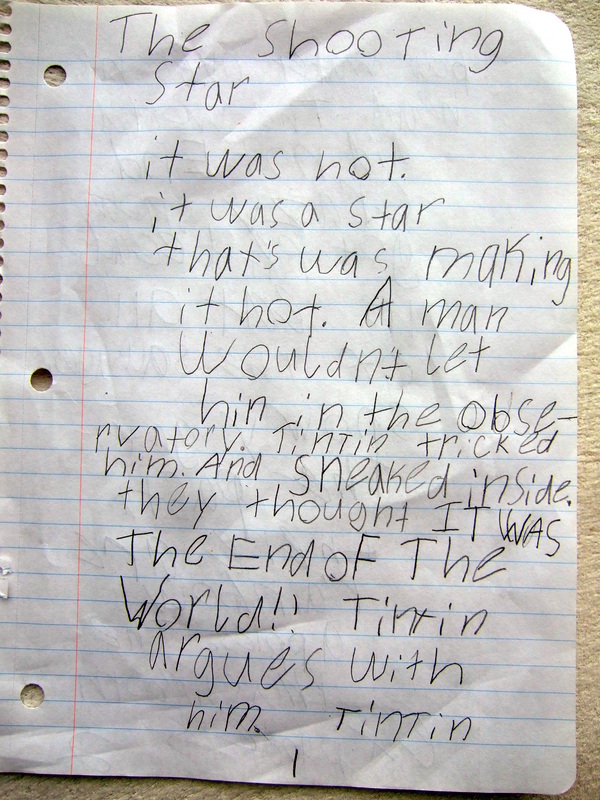 The Shooting
Star
it was hot.
it was a star
that's was making
it hot. A man
Wouldn't let
hin in the obse-
rvatory. TinTin tricked
him. And sneaked inside.
they thought IT WAS
The End oF The
World!! Tintin
argues with
him. TinTin
1